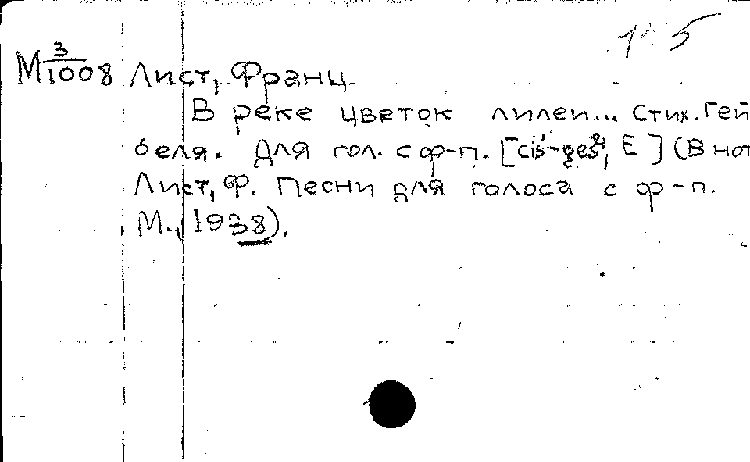 М 3/1008 Лист, Франц
В реке цветок лилеи... Стих. Гей
беля. Для гол. с ф-п. [cis¹-ges², E] (В нот
Лист, Ф. Песни для голоса с ф-п.
М., 1938).